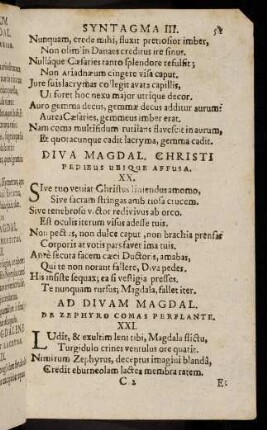 SYNTAGMA III.
Nunquam, crede mihi, fluxit pretiosior imber,
Non olim in Danaes creditus ire sinus.
Nullâque Cæsaries tanto splendore refulsit;
Non Ariadnæum cingere visa caput.
Jure suis lacrymas collegit avara capillis,
Ut foret hoc nexu major utrique decor.
Auro gemma decus, gemmæ decus additur aurum?
Aurea Cæsaries, gemmeus imber erat.
Nam coma multifidum rutilans flavescit in aurum,
Et quotacunque cadit lacryma, gemma cadit.
DIVA MAGDAL. CHRISTI
PEDIBUS UBIQUE AFFUSA.
XX.
Sive tuo veniat Christus liniendus amomo,
Sive sacram stringas ambitiosa crucem.
Sive tenebroso victor redivivus ab orco.
Est oculis iterum visus adesse tuis.
Non pectus, non dulce caput, non brachia prensas
Corporis at votis pars favet ima tuis.
Ante secuta facem cæci Doctoris, amabas,
Qui te non norant fallere, Diva pedes.
His insiste sequax; ea si vestigia presses.
Te nunquam rursus, Magdala, fallet iter.
AD DIVAM MAGDAL.
DE ZEPHYRO COMAS PERFLANTE.
XXI.
Ludit, & exultim leni tibi, Magdala flictu,
Turgidulo crines ventulus ore quatit.
Nimirum Zephyrus, deceptus imagine blandâ,
Credit eburneolam lactea membra ratem.
C 2
Et